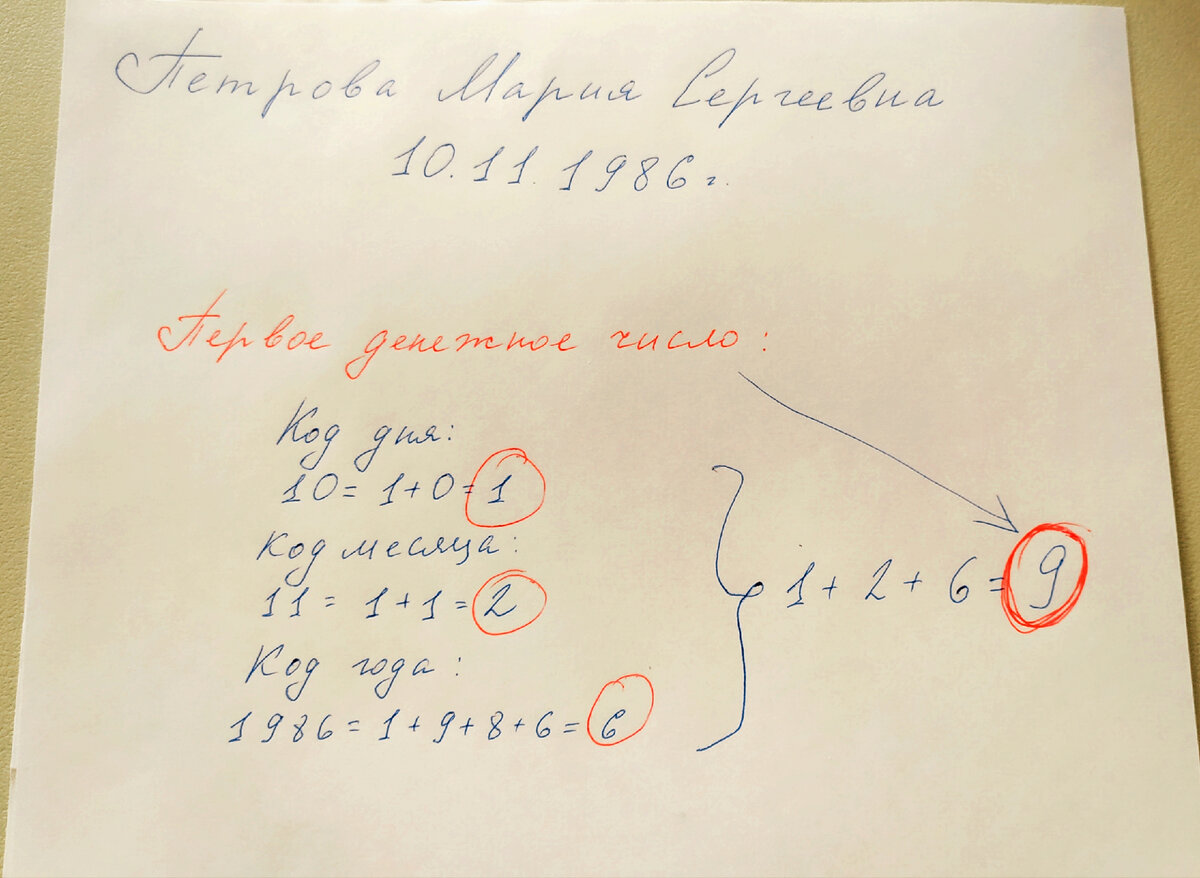 Петрова Мария Сергеевна
10.11.1986 г.
Первое денежное число:
Код дня:
10 = 1+0 = 1
Код месяца:
11 = 1+1 = 2
Код года:
1986 = 1+9+8+6 = 6
1 + 2 + 6 = 9